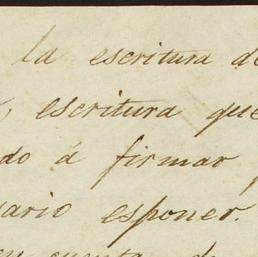 la escritura de
escritura que
do á firmar
ario esponer.
en cuenta de